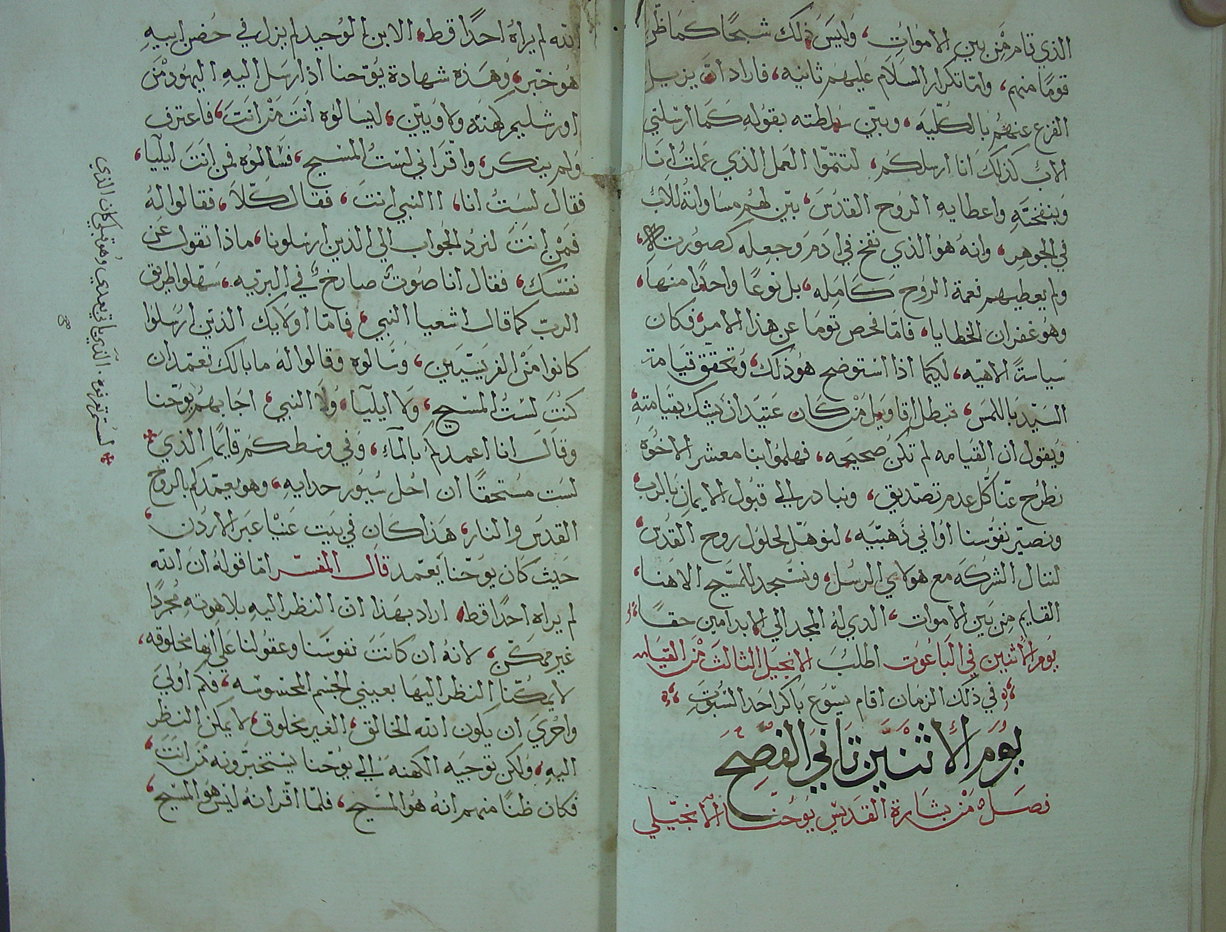 الذي قام من بين الاموات، وليس ذلك شبحًا كما ظن
قومًا منهم، وامّا تكرار السلام عليهم ثانيه، فاراد ان يزيل
الفزع عنهم بالكليه، وبيّن سلطته بقوله كما ارسلني
الاب كذلك انا ارسلكم، لتتمّوا العمل الذي عملت انا
وبنفخته واعطايه الروح القدس، بيّن لهم مساواته للاب
في الجوهر، وانه هو الذي نفخ في ادم وجعله كصورته
ولم يعطيهم نعمة الروح كامله، بل نوعًا واحدًا منها،
وهو غفران الخطايا، فامّا فحص توما عن هذا الامر فكان
سياسةً الاهيه، ليكيما اذا استوضح هو ذلك، وتحقق قيامة
السيّد باللمس، تبطل اقاويل من كان عتيد ان يشك بقيامته
ويقول ان القيامه لم تكن صحيحه، فهلموا بنا معشر الاخوة
نطرح عنّا كل عدم تصديق، ونبادر الي قبول الايمان بالرب
ونصيّر نفوسنا اواني ذهبيه، لنوهل لحلول روح القدس
لننال الشركه مع هولاي الرسل، ونسجد للمسيح الاهنا،
القايم من بين الاموات، الذي له المجد الي الابد امين حقًا
يوم الاثنين في الباعوت اطلب الانجيل الثالث من القيامه
في ذلك الزمان اقام يسوع باكر احد السبوت
يوم الاثنين تاني الفصح
فصل من بشارة القديس يوحنا الانجيلي
الله لم يراه احدًا قط، الابن الوحيد لم يزل في حضن ابيه
هو خبّر، وهذه شهادة يوحنا اذ ارسل اليه اليهود من
اورشليم كهنه ولاويين، ليسالوه انت من انت، فاعترف
ولم ينكر، واقرّ اني لست المسيح، فسالوه فمن انت ايليا،
فقال لست انا، االنبي انت، فقال كلّا، فقالوا له
فمن انت لنرد الجواب الي الذين ارسلونا، ماذا تقول عن
نفسك، فقال انا صوت صارخ في البريه، سهلوا طريق
الرب كما قال اشعيا النبي، فامّا اولايك الذين ارسلوا
كانوا من الفريسيين، وسالوه وقالوا له ما بالك تعمد ان
كنت لست المسيح، ولا ايليا، ولا النبي، اجابهم يوحنا
وقال انا اعمدكم بالمآء، وفي وسطكم قايمًا الذي
لست مستحقًا ان احل سيور حدايه، وهو يعمدكم بالروح
القدس والنار، هذا كان في بيت عنيا عبر الاردن
حيث كان يوحنا يعمد قال المفسر امّا قوله ان الله
لم يراه احدًا قط، اراد بهذا ان النظر اليه بلاهوته مجردًا
غير ممكن، لانه ان كانت نفوسنا وعقولنا علي انها مخلوقه،
لا يمكنّا النظر اليها بعيني الجسم المحسوسه، فكم اولي
واحري ان يكون الله الخالق، الغير مخلوق، لا يمكن النظر
اليه، ولكن توجيه الكهنه الي يوحنا يستخبرونه من انت،
فكان ظنًا منهم انه هو المسيح، فلمّا اقر انه ليس هو المسيح،
لستم تعرفوه الذي ياتي بعدي وهو قبلي كان الذي
صح